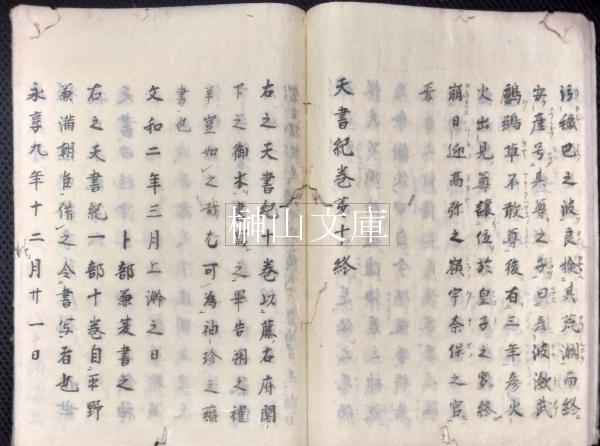 安産号其尊之子曰彦波瀲武
鸕鷀草不敢尊後百三年彦火
火出見尊譲位於皇子之宮終
崩日迎高弥之嶺宇奈保之宮
天書紀巻第十終
右之天書紀十巻以藤右府閣
下之御本書冩之畢告朔之禮
羊豈如之哉尤可為袖珍之蘊
書也
文和二年三月上澣之日
卜部兼
右之天書紀一部十巻自平野
兼満朝臣借之令書写者也
永享九年十二月廿一日
榊山文庫